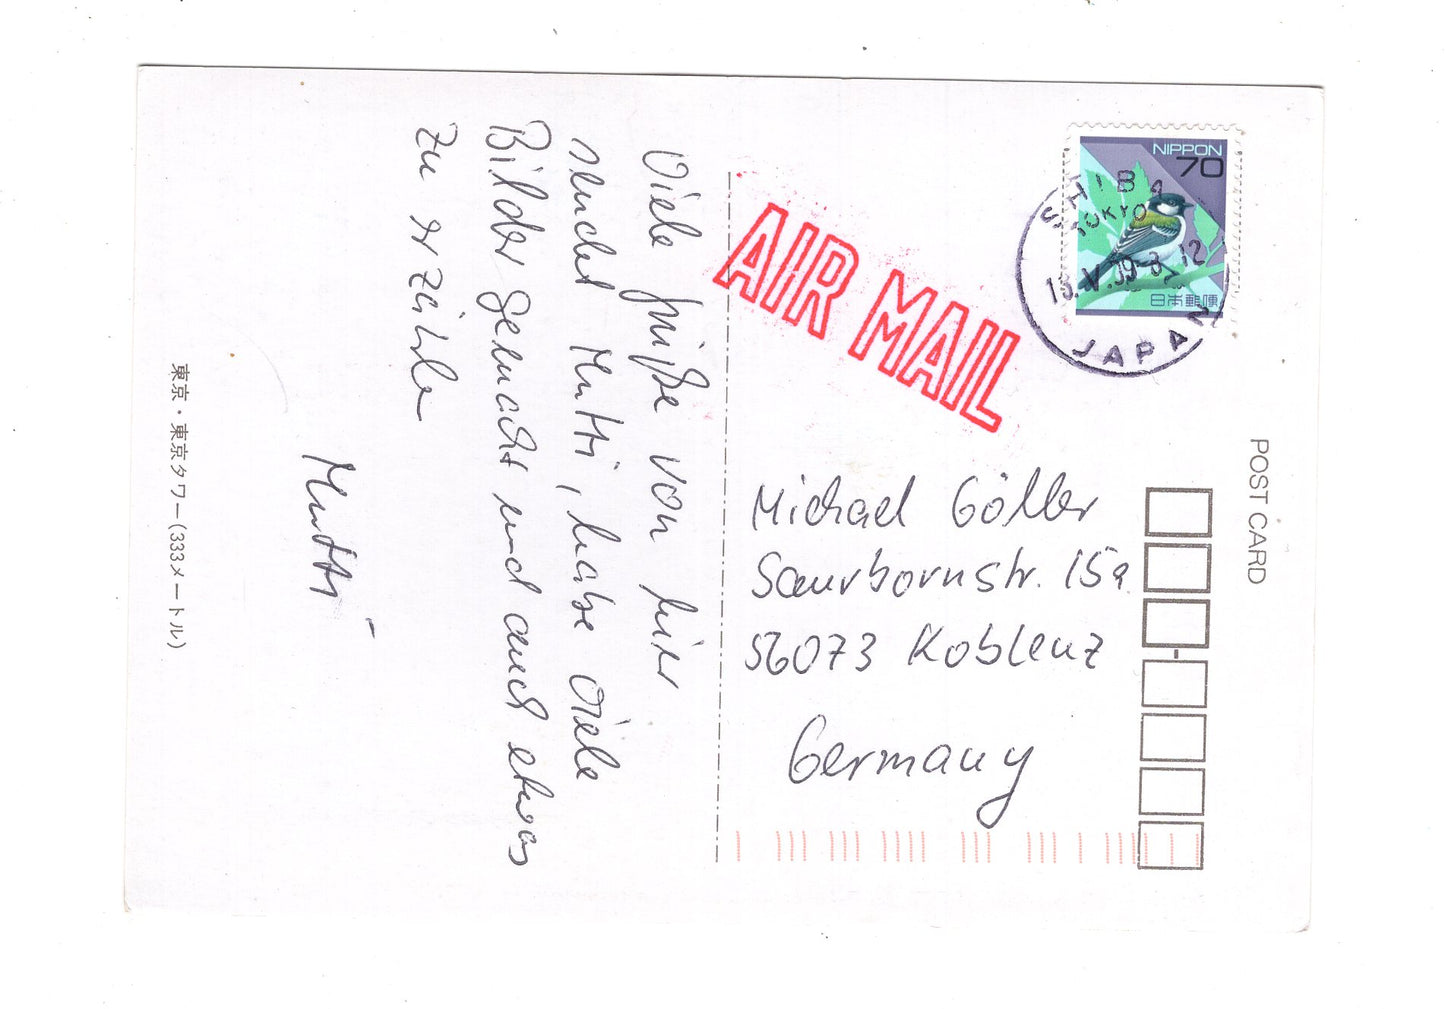 Viele Grüße von hier
sendet Mutti, habe viele
Bilder gemacht und auch etwas
zu erzählen
Mutti
東京・東京タワー(333メートル)
AIR MAIL
NIPPON
70
日本郵便
SHIBA
TOKYO
13.V.99 8-12
JAPAN
POST CARD
Michael Göller
Saurbornstr. 15a
56073 Koblenz
Germany